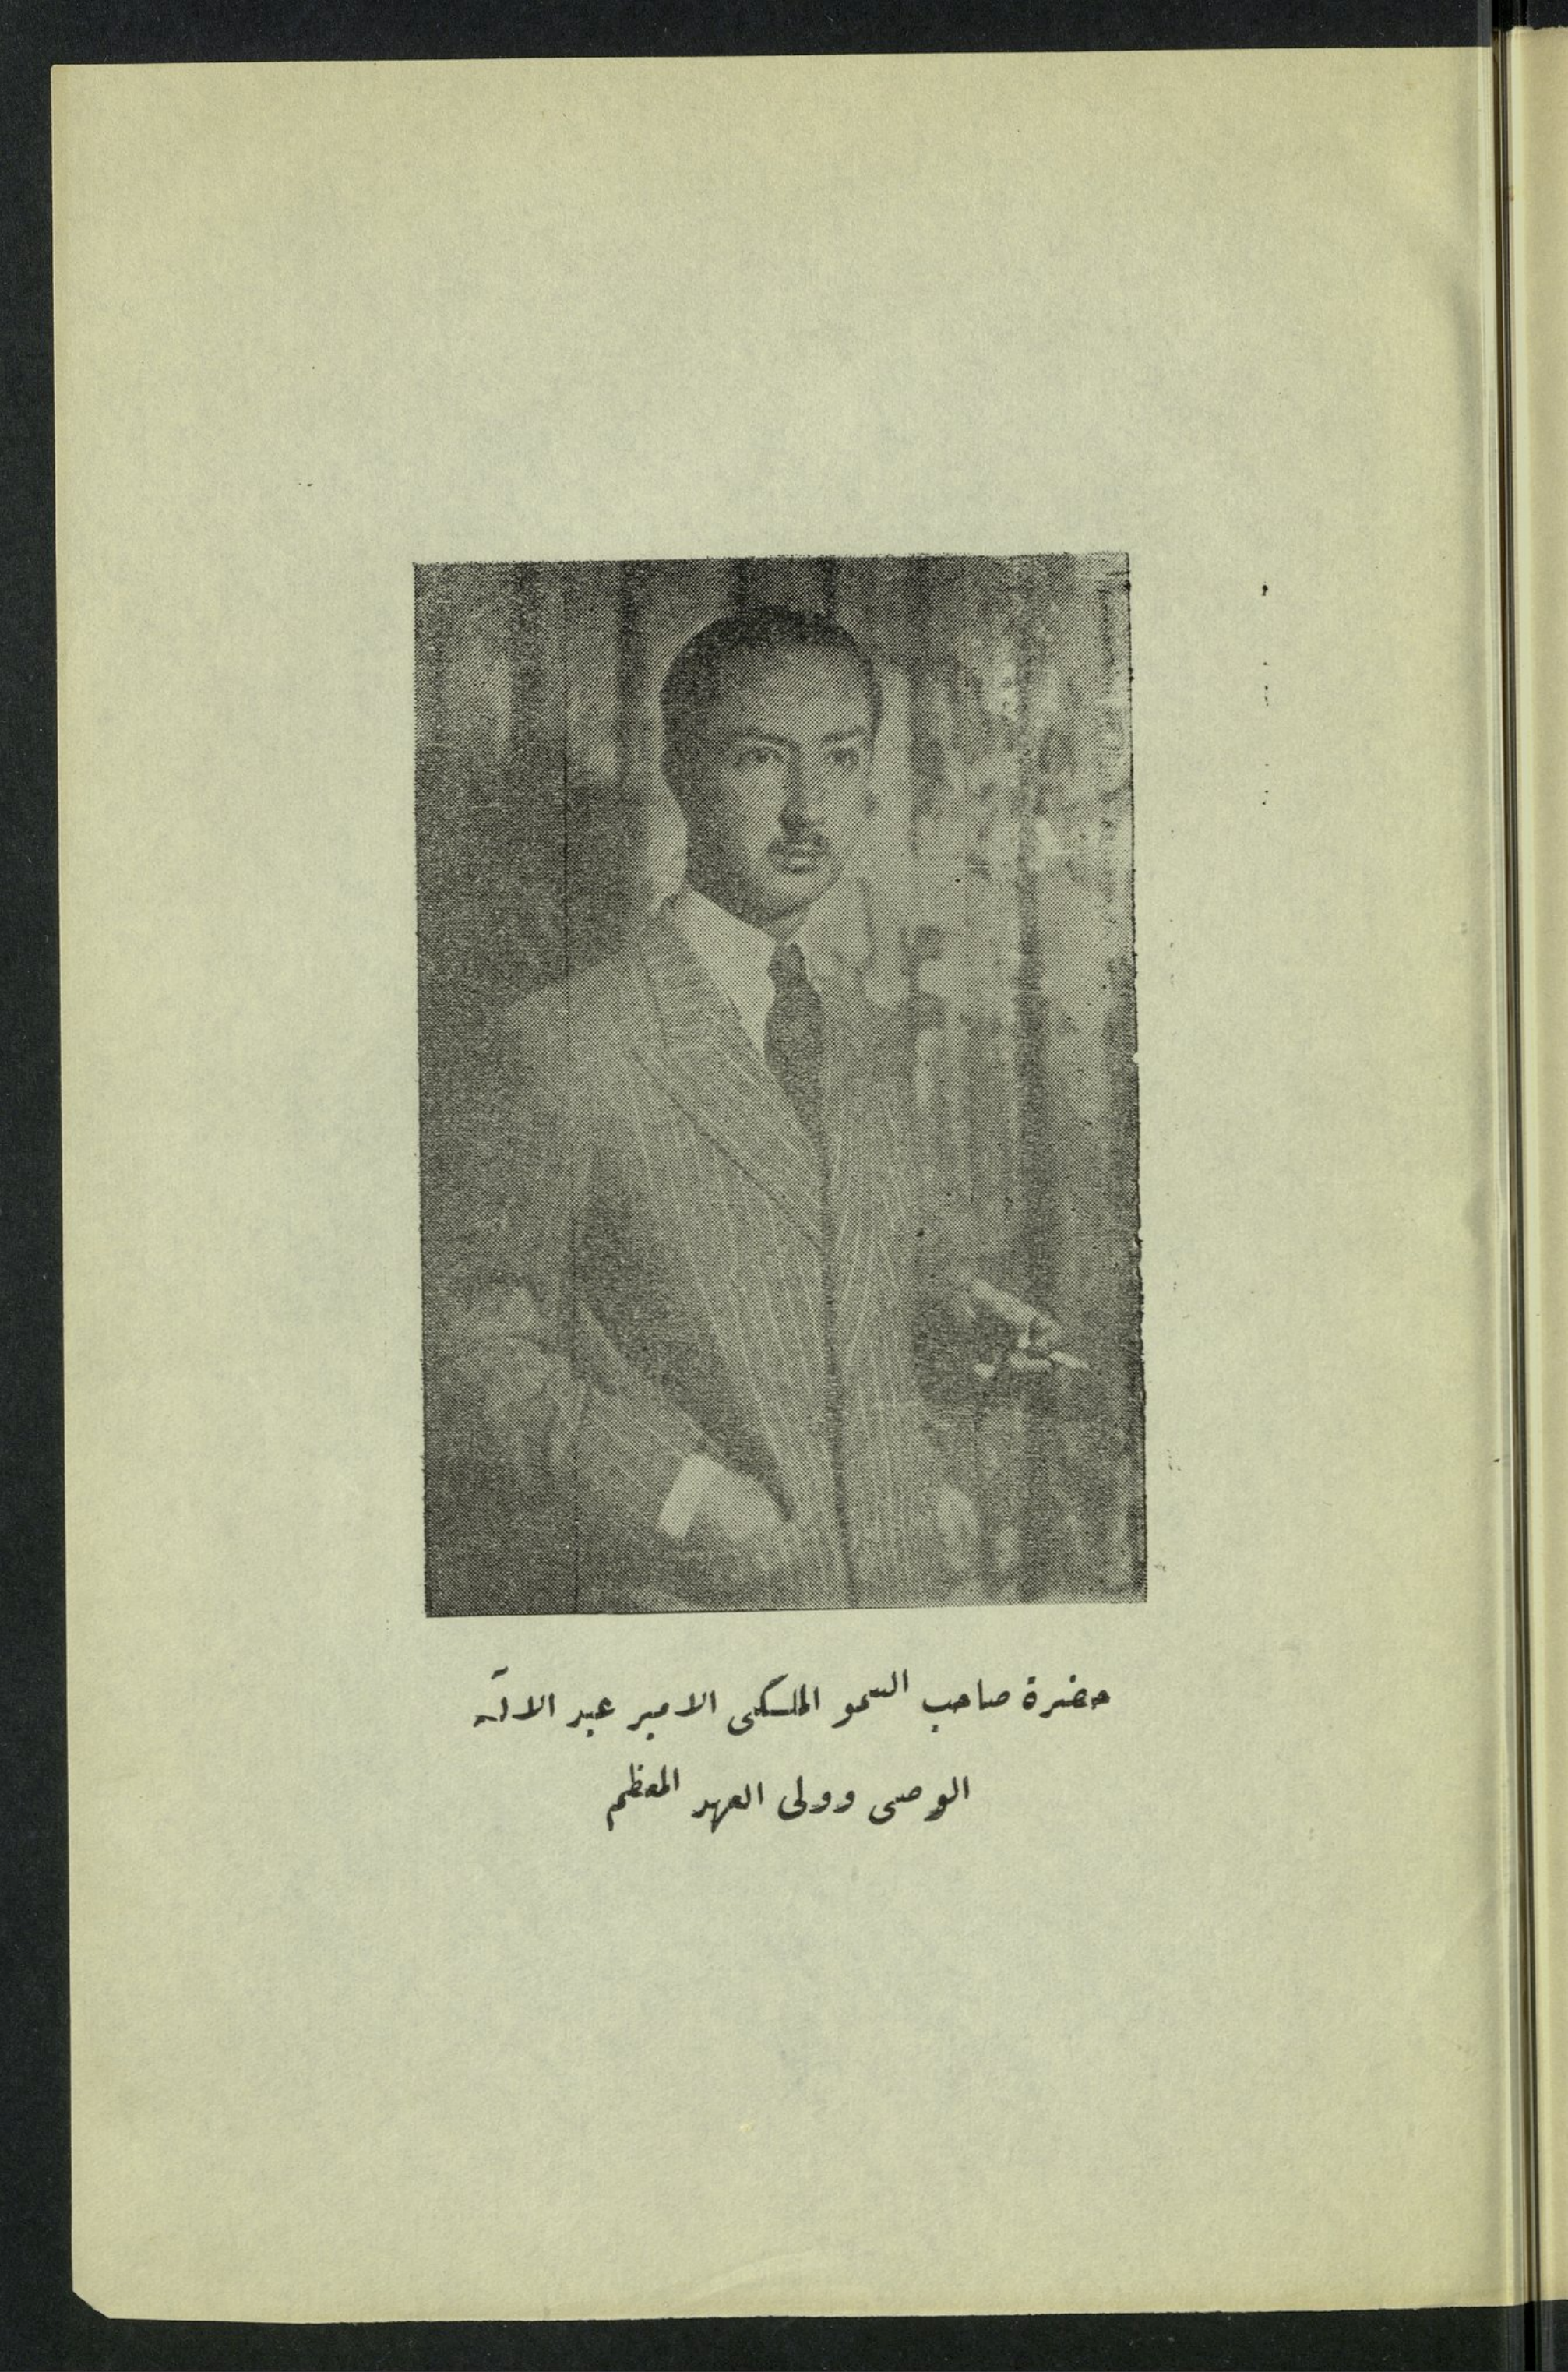 حضرة صاحب السمو الملكي الامير عبد الاله
الوصي وولي العهد المعظم